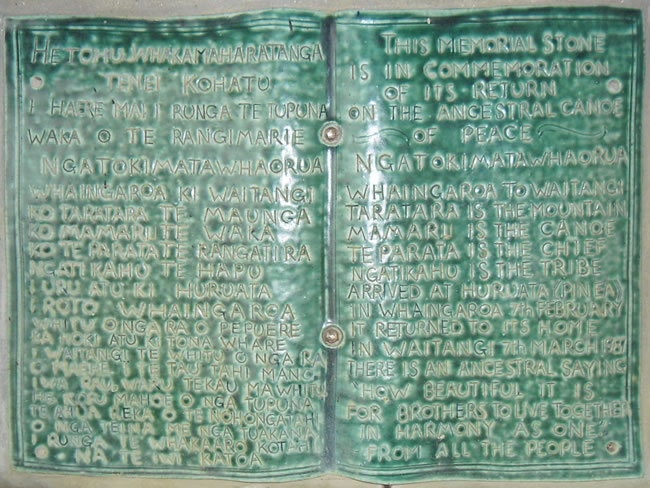 HE TOHU WHAKAMAHARATANGA
TENEI KOHATU
I HAERE MAI I RUNGA TE TUPUNA
WAKA O TE RANGIMARIE
NGATOKIMATAWHAORUA
WHAINGAROA KI WAITANGI
KO TARATARA TE MAUNGA
KO MAMARII TE WAKA
KO TE PARATA TE RANGATIRA
NGATI KAHU TE HAPU
I URU ATU KI HURUATA
I ROTO WHAINGAROA
WHITU O NGA RA O PEPUERE
KA HOKI ATU KI TONA WHARE
I WAITANGI TE WHITU O NGA RA
O MAEHE I TE TAU TAHI MANO
IWA RAU WARU TEKAU MA WHITU
HE KORU MAHOE O NGA TUPUNA
TE AHUA REKA O TE NOHONGATAHI
O NGA TEINA ME NGA TUAKANA
I RUNGA I TE WHAKARO KOTAHI
NA TE IWI KATOA
THIS MEMORIAL STONE
IS IN COMMEMORATION
OF ITS RETURN
ON THE ANCESTRAL CANOE
OF PEACE
NGATOKIMATAWHAORUA
WHAINGAROA TO WAITANGI
TARATARA IS THE MOUNTAIN
MAMARU IS THE CANOE
TE PARATA IS THE CHIEF
NGATIKAHU IS THE TRIBE
ARRIVED AT HURUATA (PINEA)
IN WHAINGAROA 7TH FEBRUARY
IT RETURNED TO ITS HOME
IN WAITANGI 7TH MARCH 1987
THERE IS AN ANCESTRAL SAYING
"HOW BEAUTIFUL IT IS
FOR BROTHERS TO LIVE TOGETHER
IN HARMONY AS ONE"
FROM ALL THE PEOPLE